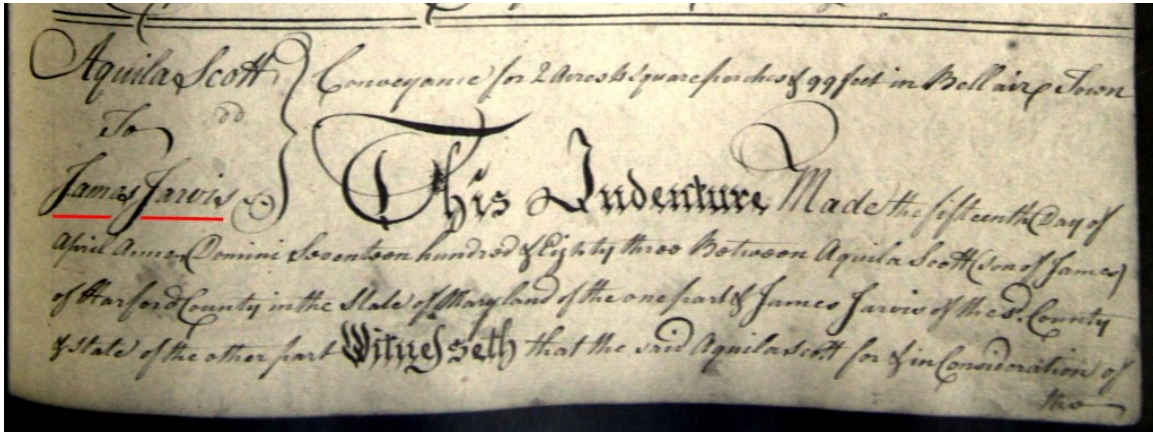 Aquila Scott Conveyance for 2 Acres square perches & 99 feet in Bell air Town
To
James Jarvis This Indenture Made the fifteenth Day of
April Anno Domini Seventeen hundred & Eighty three Between Aquila Scott (son of James)
of Harford County in the State of Maryland of the one part & James Jarvis of the sd. County
& State of the other part Witnesseth that the said Aquila Scott for & in Consideration of
the